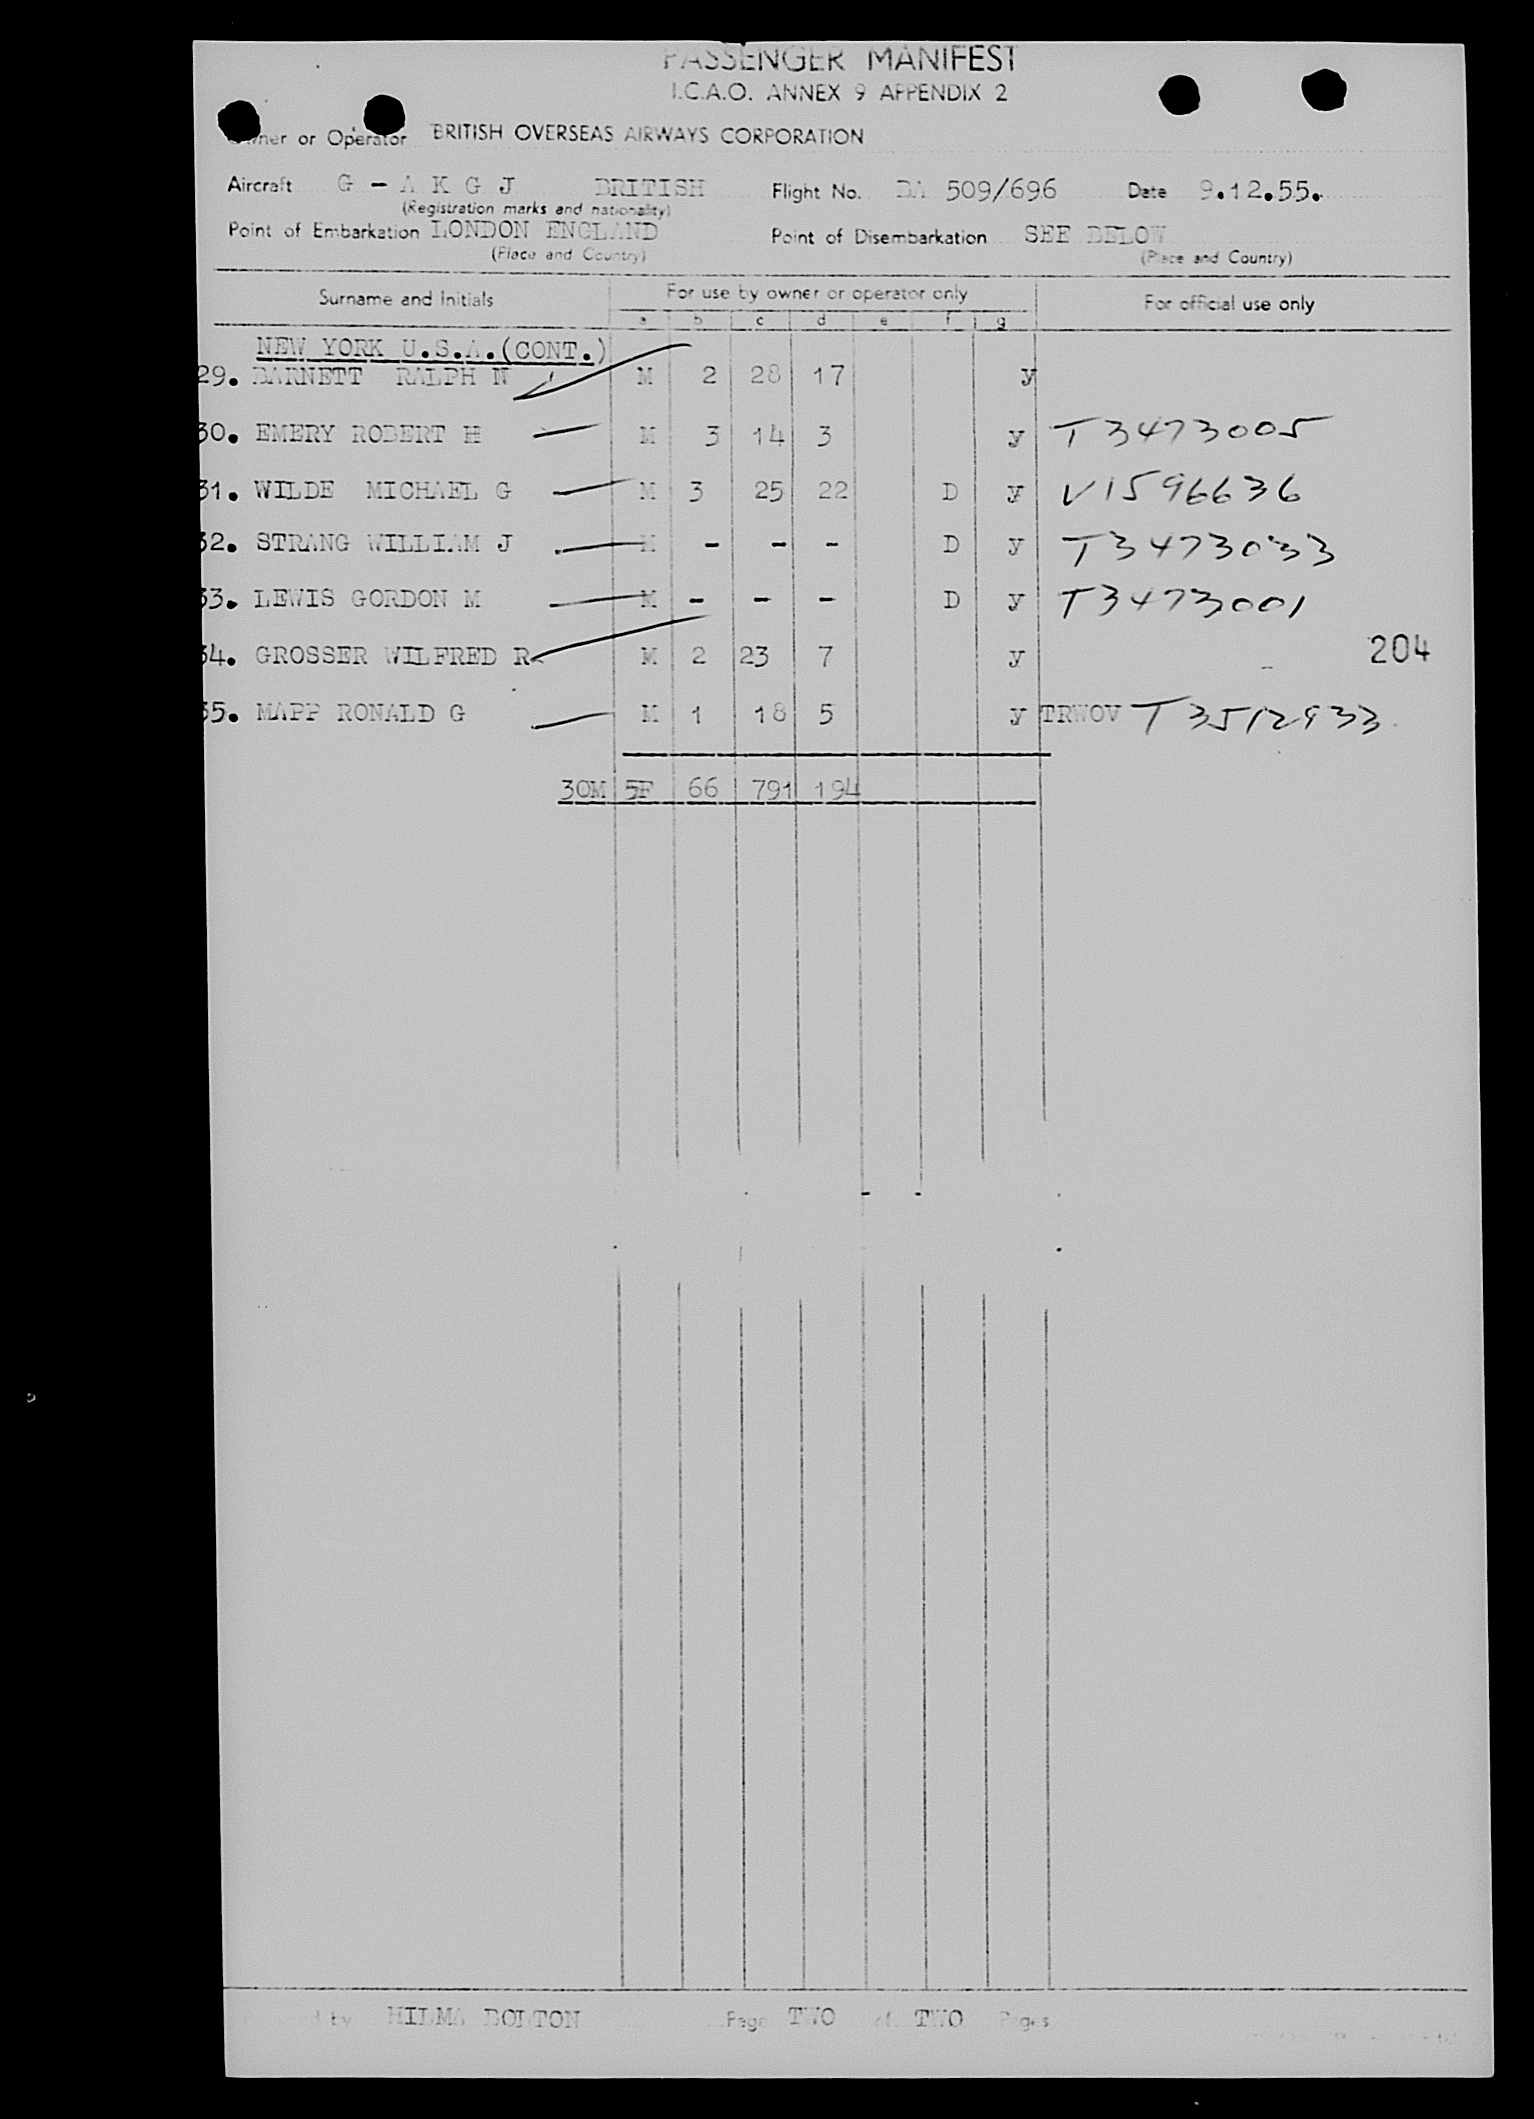 PASSENGER MANIFEST
I.C.A.O. ANNEX 9 APPENDIX 2
Owner or Operator BRITISH OVERSEAS AIRWAYS CORPORATION
Aircraft G - A K G J BRITISH Flight No. BA 509/696 Date 9.12.55.
(Registration marks and nationality)
Point of Embarkation LONDON ENGLAND Point of Disembarkation SEE BELOW
(Place and Country) (Place and Country)
Surname and Initials For use by owner or operator only For official use only
a b c d e f g
NEW YORK U.S.A.(CONT.)
29. BARNETT RALPH N M 2 28 17 y
30. EMERY ROBERT H M 3 14 3 y T3473005
31. WILDE MICHAEL G M 3 25 22 D y V1596636
32. STRANG WILLIAM J M - - - D y T3473033
33. LEWIS GORDON M M - - - D y T3473001
34. GROSSER WILFRED R M 2 23 7 y 204
35. MAPP RONALD G M 1 18 5 y TRWOV T3512933
30M 5F 66 791 194
by HILMA BOLTON Page TWO of TWO Pages